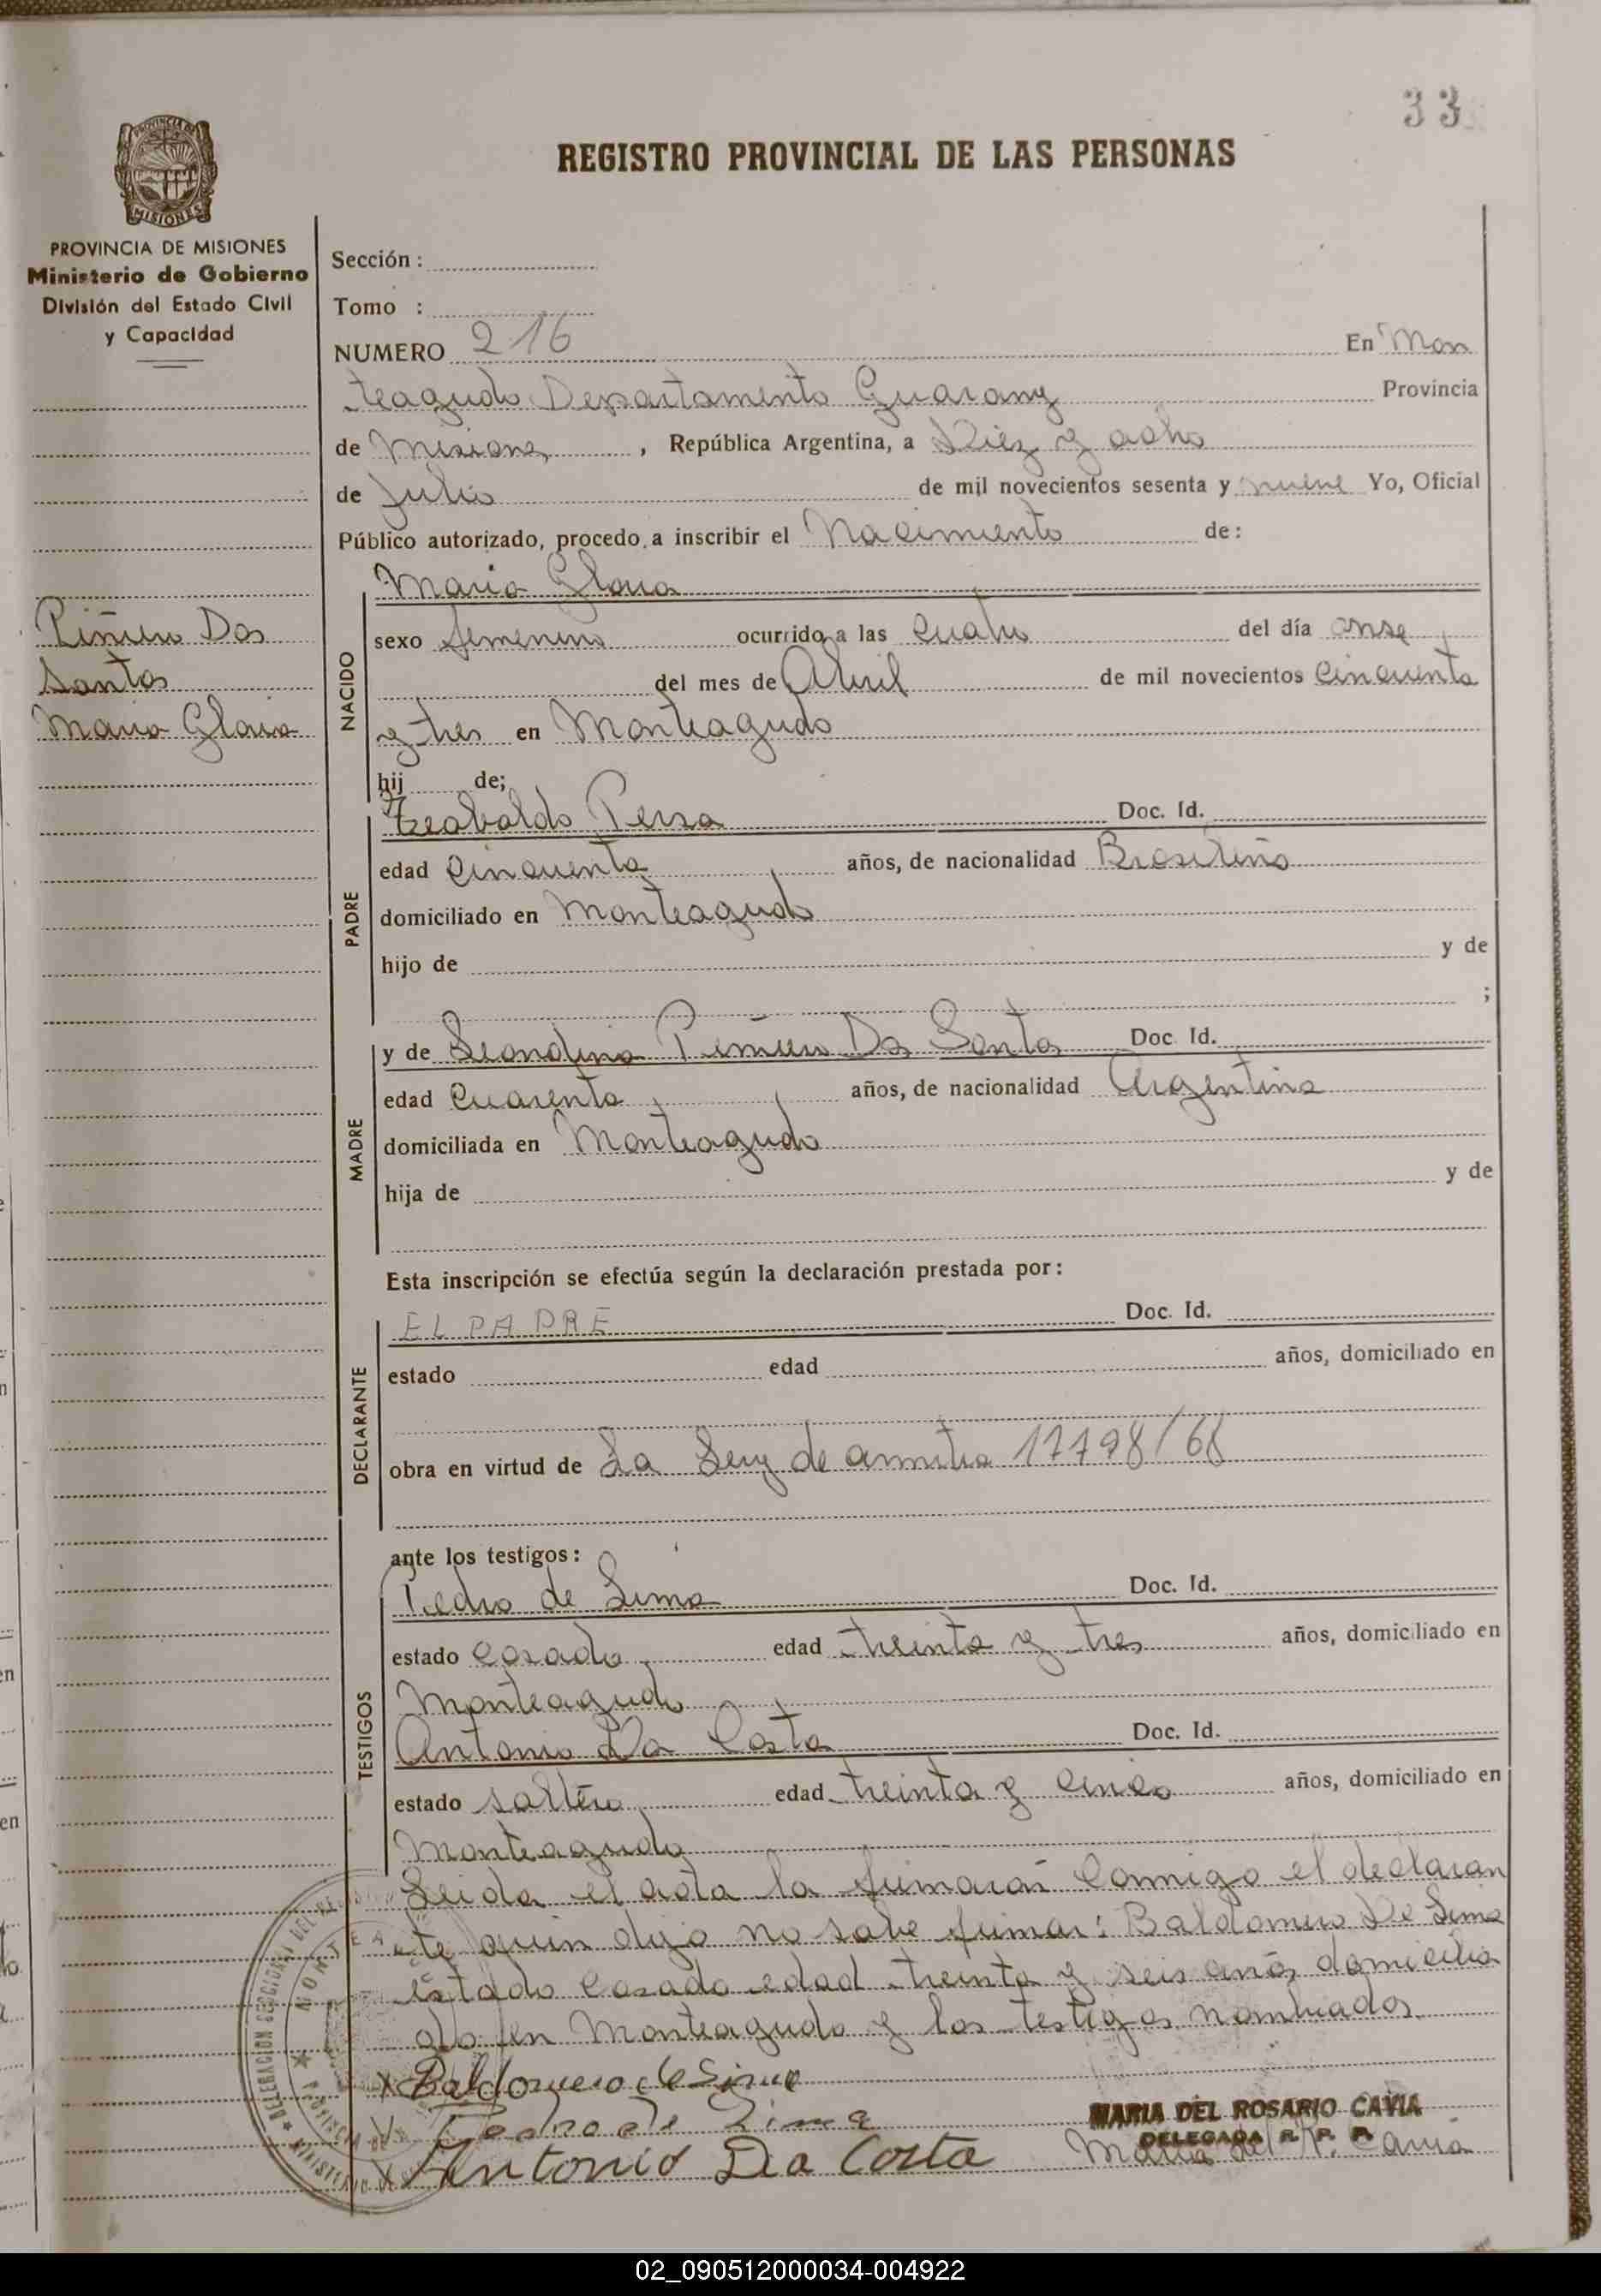 33
REGISTRO PROVINCIAL DE LAS PERSONAS
PROVINCIA DE MISIONES
Ministerio de Gobierno
División del Estado Civil
y Capacidad
Sección :
Tomo :
NUMERO 216 En Mon
teagudo Departamento Guarany Provincia
de Misiones, República Argentina, a Diez y ocho
de Julio de mil novecientos sesenta y nueve Yo, Oficial
Público autorizado, procedo a inscribir el Nacimiento de:
Piñeiro Dos
Santos
Maria Gloria
NACIDO
Maria Gloria
sexo femenino ocurrido a las cuatro del día onse
del mes de Abril de mil novecientos cincuenta
y tres en Monteagudo
hij de;
PADRE
Teobaldo Doc. Id.
edad cincuenta años, de nacionalidad Brasileño
domiciliado en Monteagudo
hijo de y de
;
MADRE
y de Leondina Piñeiro Dos Santos Doc. Id.
edad cuarenta años, de nacionalidad Argentina
domiciliada en Monteagudo
hija de y de
Esta inscripción se efectúa según la declaración prestada por:
DECLARANTE
EL PADRE Doc. Id.
estado edad años, domiciliado en
obra en virtud de La Ley de 17798/68
ante los testigos:
TESTIGOS
Pedro de Lima Doc. Id.
estado casado edad treinta y tres años, domiciliado en
Monteagudo
Antonio Da Costa Doc. Id.
estado soltero edad treinta y cinco años, domiciliado en
Monteagudo
Leida el acta la firmarán conmigo el declaran
te quien dijo no sabe firmar: Baldomero De Lima
estado casado edad treinta y seis años domicilia
do en Monteagudo y los testigos nombrados
Baldomero de Lima
Pedro de Lima
Antonio Da Costa
MARIA DEL ROSARIO CAVIA
DELEGADA R. P. P.
Maria del R. Cavia
02_090512000034-004922